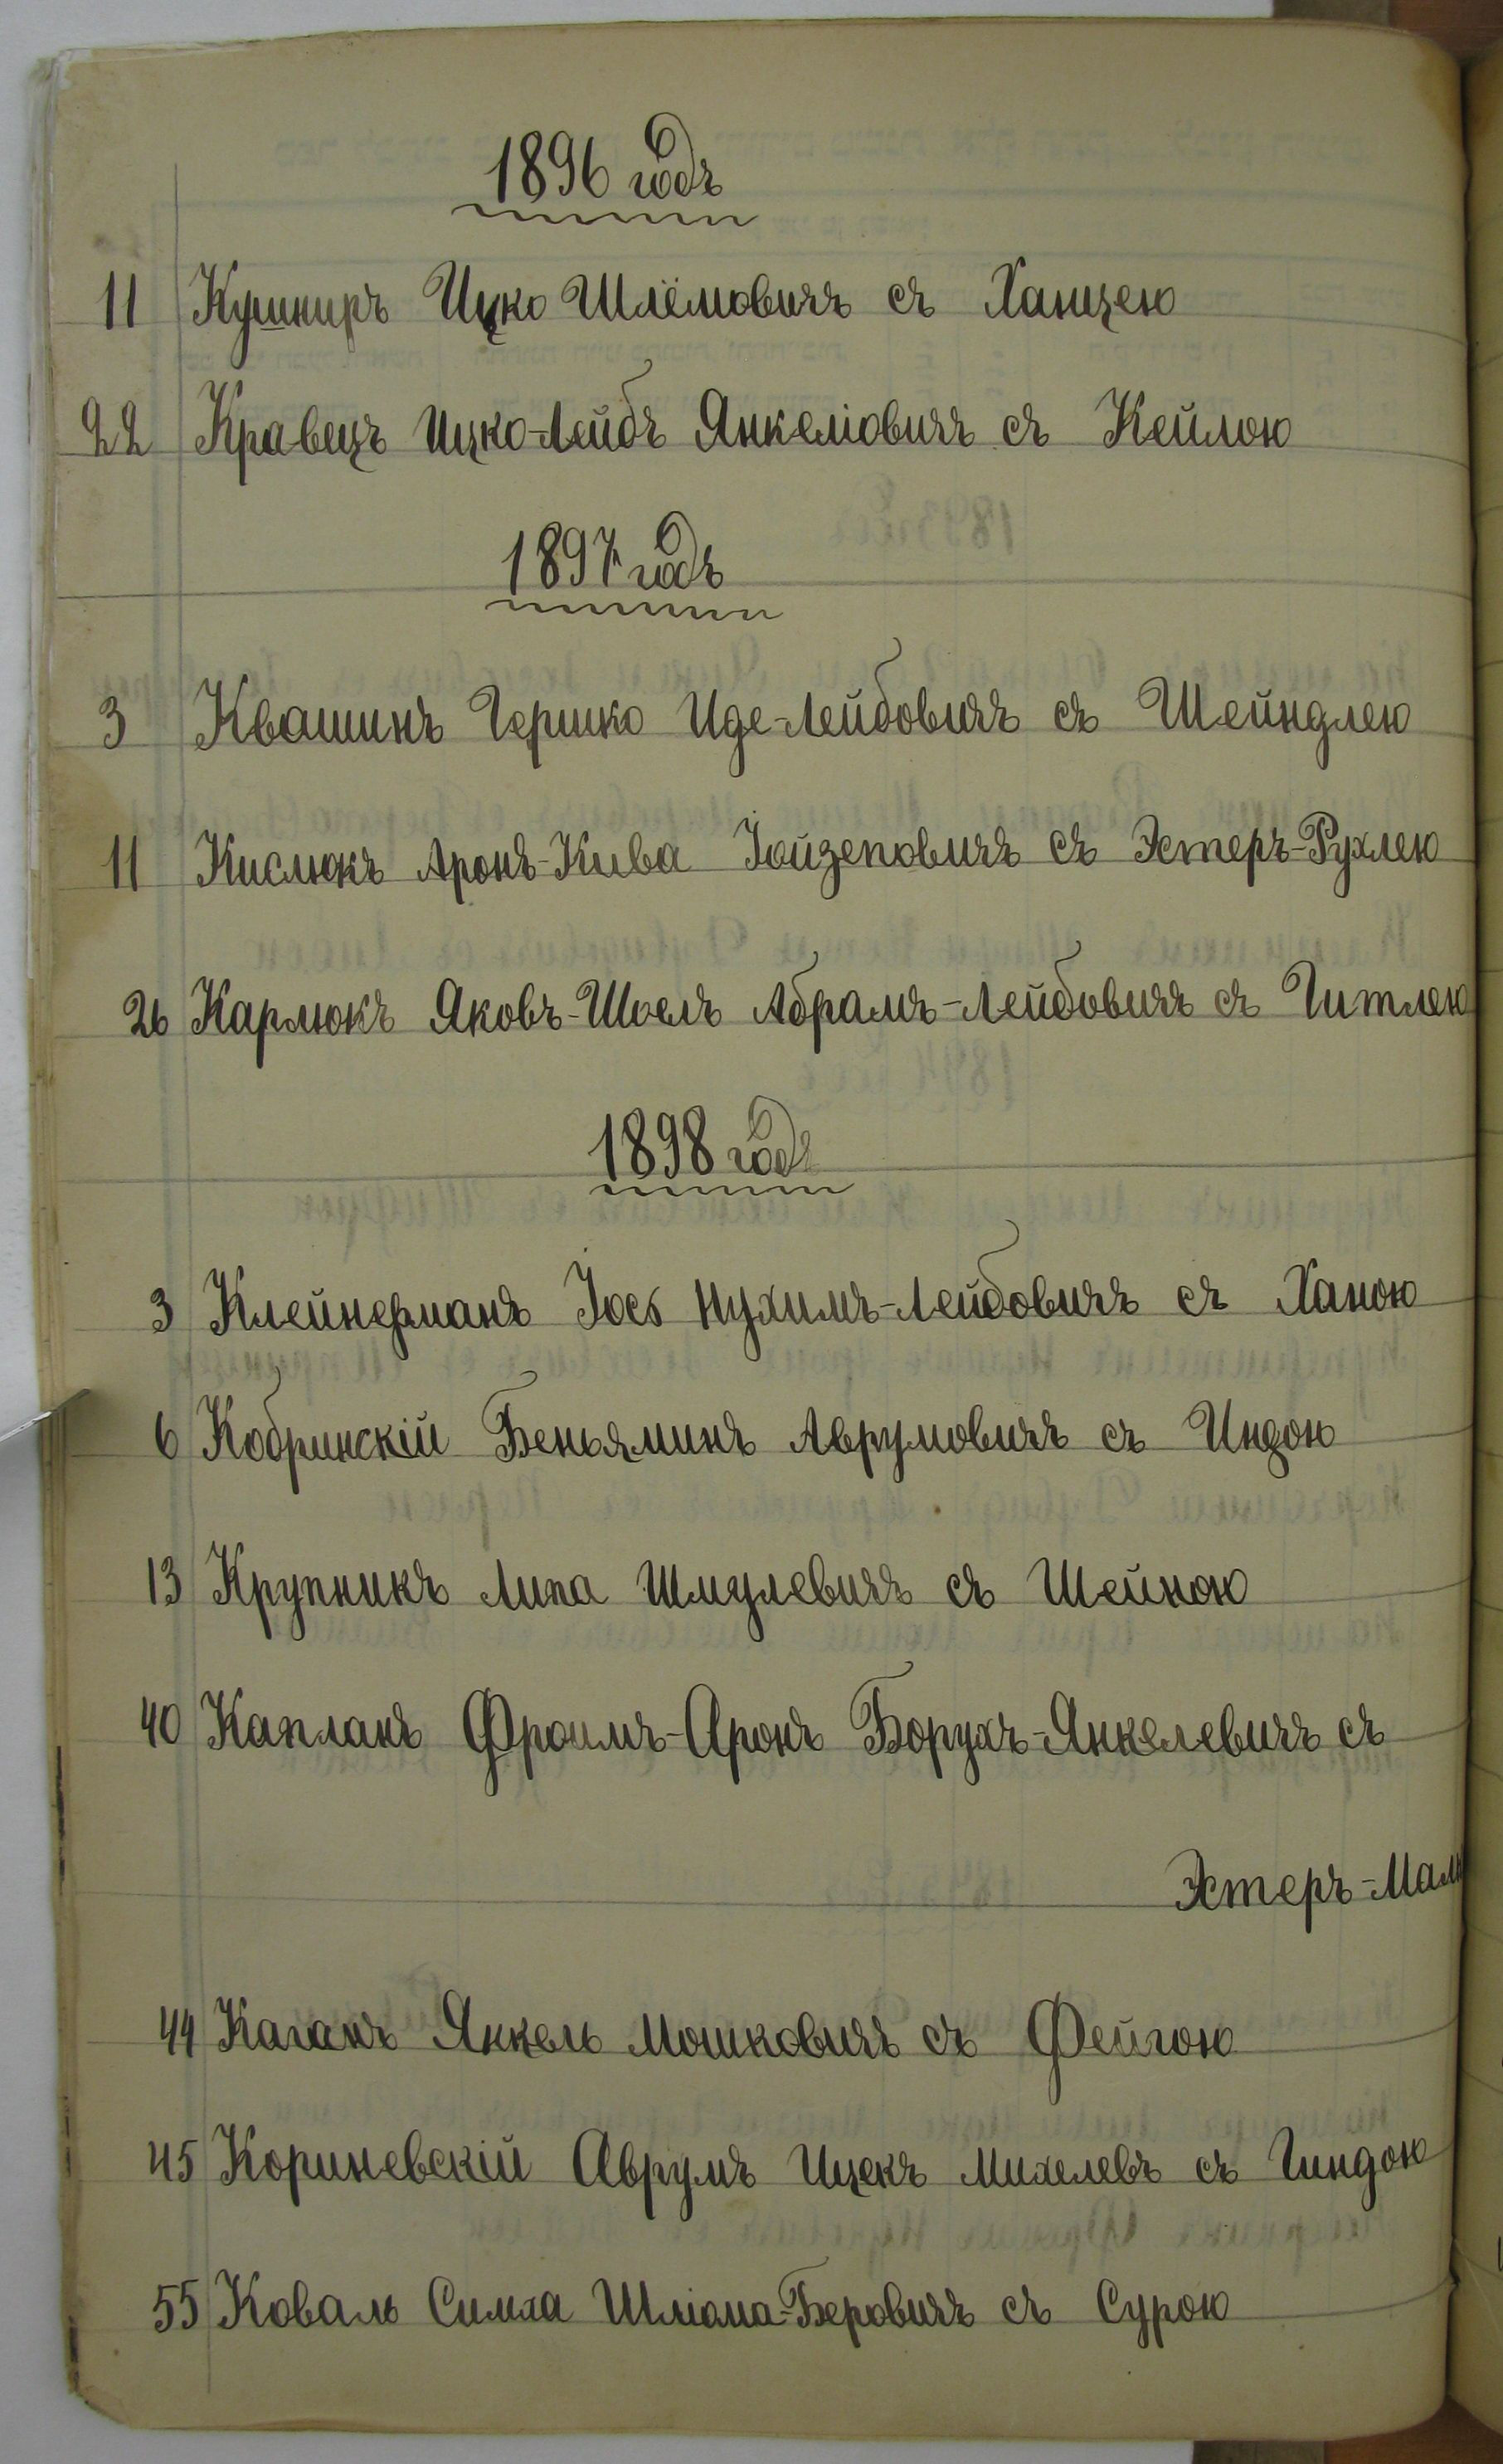 1896 годъ
11 Кушниръ Ицко Шлёмовичъ съ Ханцею
22 Кравецъ Ицко-Лейбъ Янкеліовичъ съ Кейлою
1897 годъ
3 Квашинъ Гершко Иде-Лейбовичъ съ Шейндлею
11 Кислюкъ Аронъ-Кива Іойзеповичъ съ Эстеръ-Рухлею
26 Карлюкъ Яковъ-Шоелъ Абрамъ-Лейбовичъ съ Гитлею
1898 годъ
3 Клейнерманъ Іосъ Нухимъ-Лейбовичъ съ Ханою
6 Кобринскій Беньяминъ Аврумовичъ съ Индою
13 Крупникъ Липа Шмулевичъ съ Шейною
40 Капланъ Фроимъ-Аронъ Борухъ-Янкелевичъ съ
Эстеръ-Малк
44 Каганъ Янкель Мошковичъ съ Фейгою
45 Кориневскій Аврумъ Ицекъ Михелевъ съ Гиндою
55 Коваль Симха Шліома-Беровичъ съ Сурою